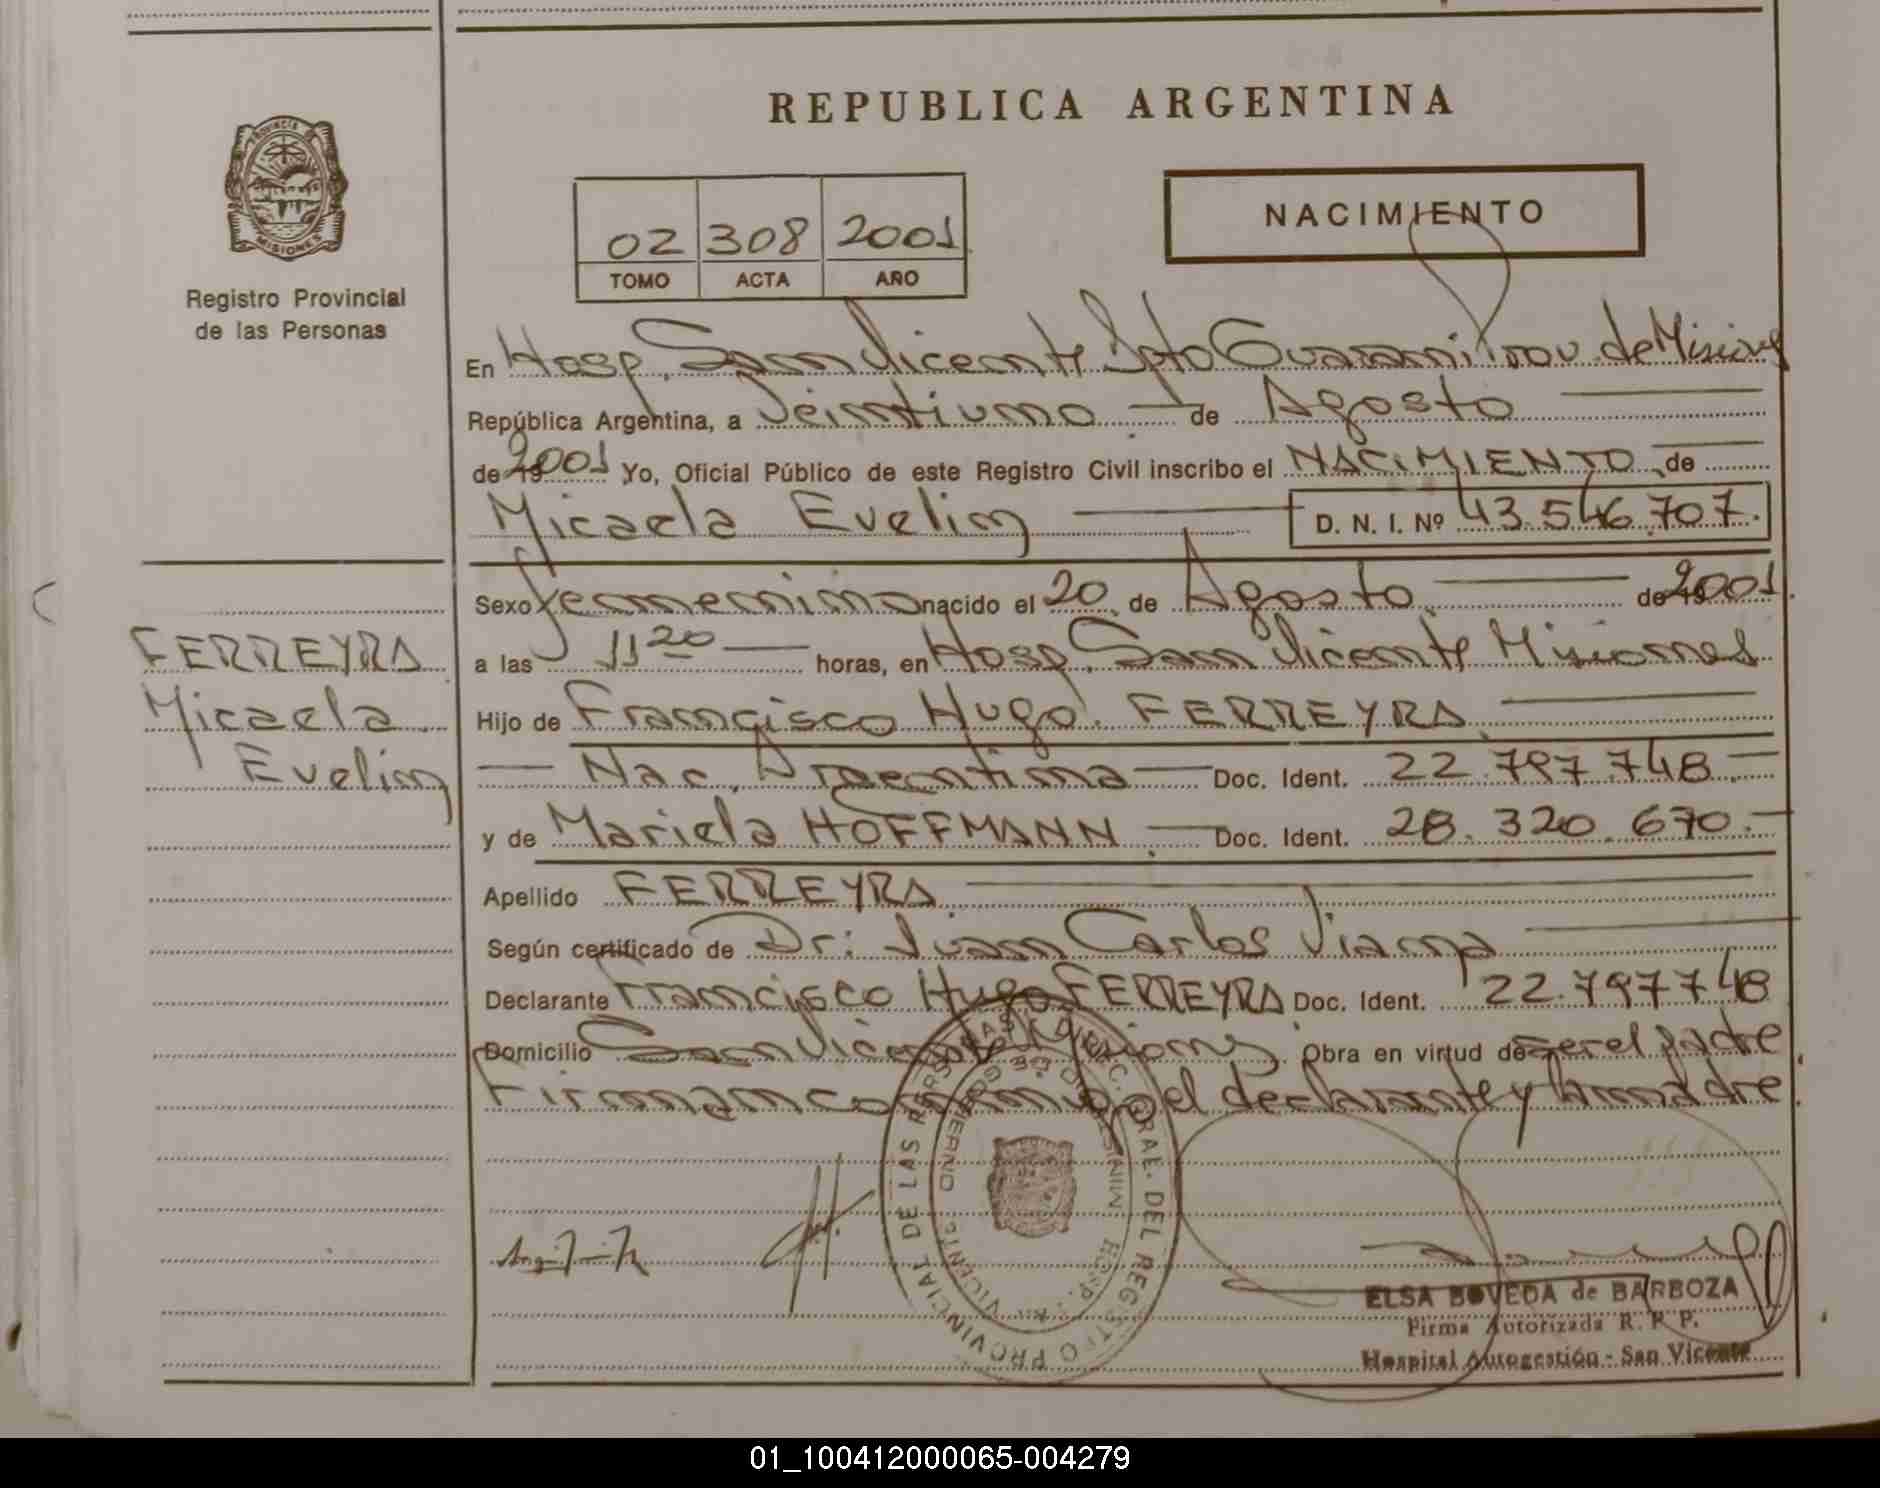 REPUBLICA ARGENTINA
PROVINCIA DE
MISIONES
Registro Provincial
de las Personas
02 308 2001
TOMO ACTA AÑO
NACIMIENTO
En Hosp. San Vicente Dpto Guarani Prov. de Misiones
República Argentina, a Veintiuno de Agosto
de 2001 Yo, Oficial Público de este Registro Civil inscribo el NACIMIENTO de
Micaela Evelin D. N. I. Nº 43.546.707.
Sexo femenino nacido el 20 de Agosto de 2001.
a las 11 20 horas, en Hosp. San Vicente Misiones
Hijo de Francisco Hugo FERREYRA
Nac. Argentina Doc. Ident. 22.797.748
y de Mariela HOFFMANN Doc. Ident. 28.320.670.
Apellido FERREYRA
Según certificado de Dr: Juan Carlos Viana
Declarante Francisco Hugo FERREYRA Doc. Ident. 22.797748
Domicilio San Vicente Misiones. Obra en virtud de ser el padre
Firman conmigo el declarante y la madre.
FERREYRA
Micaela
Evelin
PROVINCIAL DE LAS PERSONAS DIREC. GRAL. DEL REGISTRO
ELSA BOVEDA de BARBOZA
Firma Autorizada R. P. P.
Hospital Autogestión - San Vicente
01_100412000065-004279